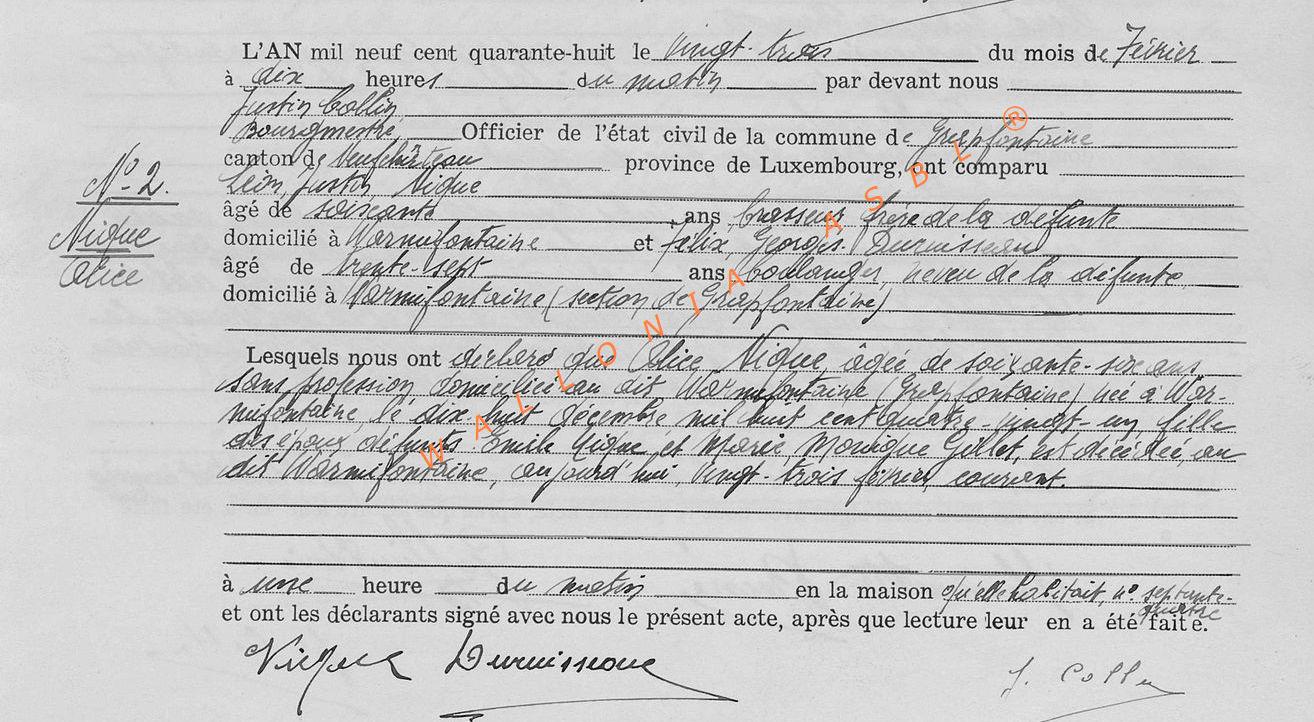 L'AN mil neuf cent quarante-huit le vingt-trois du mois de Février
à dix heures du matin par devant nous
Justin Collin,
bourgmestre, Officier de l'état civil de la commune de Grapfontaine
canton de Neufchâteau province de Luxembourg, ont comparu
Léon, Justin Nique
âgé de soixante ans brasseur, frère de la défunte
domicilié à Warmifontaine et Félix, Georges Duruisseau
âgé de trente-sept ans boulanger, neveu de la défunte,
domicilié à Warmifontaine (section de Grapfontaine)
N° 2.
Nique
Alice
Lesquels nous ont déclaré que Alice Nique, âgée de soixante-six ans,
sans profession, domiciliée au dit Warmifontaine (Grapfontaine) née à War-
mifontaine, le dix-huit décembre mil huit cent quatre-vingt-un, fille
des époux défunts Emile Nique et Marie Monique Gillet, est décédée, au
dit Warmifontaine, aujourd'hui, vingt-trois février, courant.
à une heure du matin en la maison qu'elle habitait, n° septante-
quatre
et ont les déclarants signé avec nous le présent acte, après que lecture leur en a été faite.
Duruisseau
J. Collin
WALLONIA ASBL ®